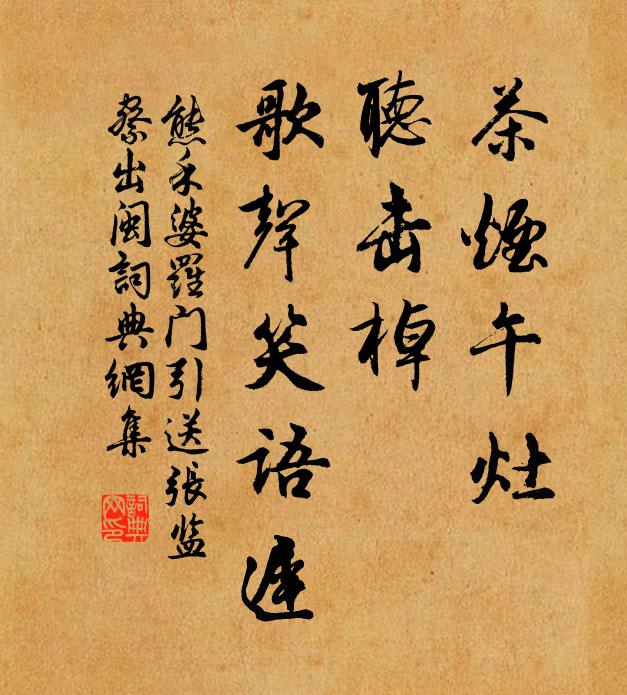 茶煙午灶
聽击棹
歌聲笑語遲
熊禾婆羅门引送張监
察出閩詞典網集
詞典网印